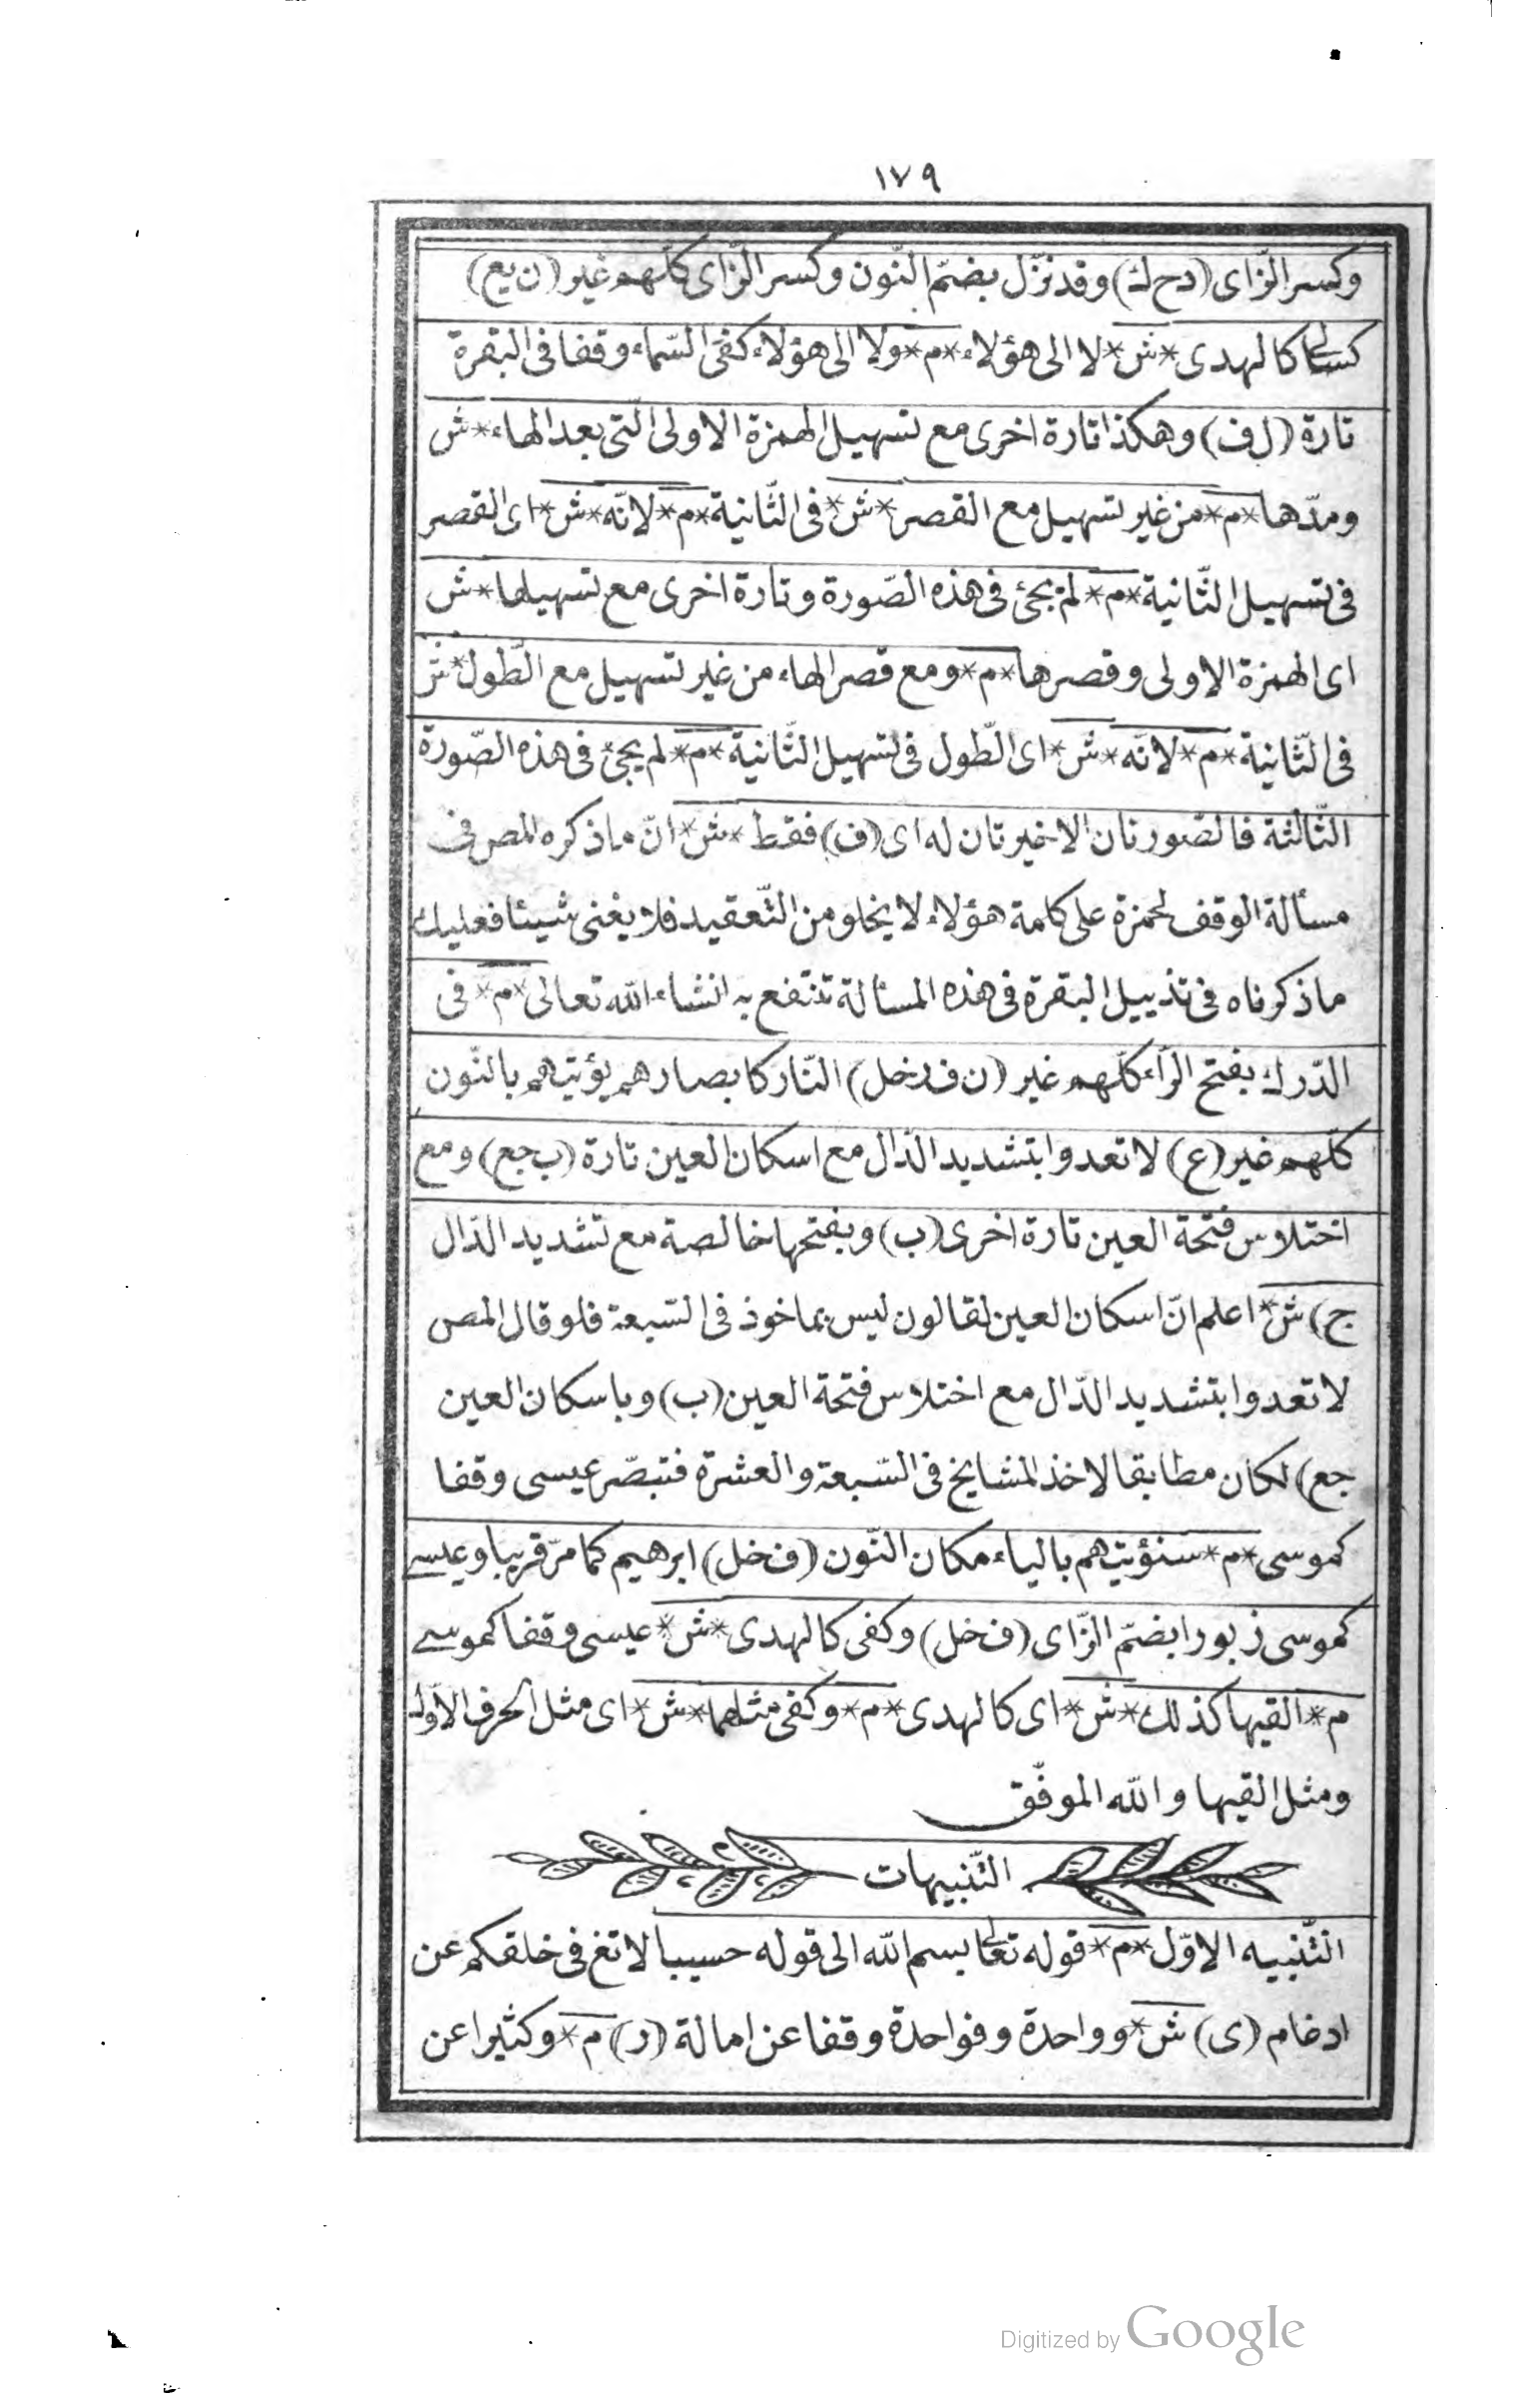 ١٧٩
وكسر الزّاى (دح ك) وقد نزّل بضمّ النّون وكسر الزّاى كلّهم غير (ن يع)
كسالى كالهدى *ش* لا الى هؤلاء *م* ولا الى هؤلاء كفى السّماء وقفا فى البقرة
تارة (ل ف) وهكذا تارة اخرى مع تسهيل الهمزة الاولى الّتى بعد الهاء *ش
ومدّها *م* من غير تسهيل مع القصر *ش* فى الثّانية *م* لانّه *ش* اى القصر
فى تسهيل الثّانية *م* لم يجئ فى هذه الصّورة وتارة اخرى مع تسهيلها *ش
اى الهمزة الاولى وقصرها *م* ومع قصر الهاء من غير تسهيل مع الطّول *ش
فى الثّانية *م* لانّه *ش* اى الطّول فى تسهيل الثّانية *م* لم يجئ فى هذه الصّورة
الثّالثة فالصّورتان الاخيرتان له اى (ف) فقط *ش* انّ ما ذكره المص فى
مسألة الوقف لحمزة على كلمة هؤلاء لا يخلو من التّعقيد فلا يغنى شيئا فعليك
ما ذكرناه فى تذييل البقرة فى هذه المسألة تنتفع به انشاء الله تعالى *م* فى
الدّرك بفتح الرّاء كلّهم غير (ن ف رخل) النّار كابصارهم يؤتيهم بالنّون
كلّهم غير (ع) لا تعدوا بتشديد الدّال مع اسكان العين تارة (ب جع) ومع
اختلاس فتحة العين تارة اخرى (ب) وبفتحها خالصة مع تشديد الدّال
ج) ش* اعلم انّ اسكان العين لقالون ليس بماخوذ فى السّبعة فلو قال المص
لا تعدوا بتشديد الدّال مع اختلاس فتحة العين (ب) وباسكان العين
جع) لكان مطابقا لاخذ المشايخ فى السّبعة والعشرة فتبصّر عيسى وقفا
كموسى *م* سنؤتيهم بالياء مكان النّون (ف خل) ابرهيم كما مرّ قريبا وعيسى
كموسى زبورا بضمّ الزّاى (ف خل) وكفى كالهدى *ش* عيسى وقفا كموسى
م* القيها كذلك *ش* اى كالهدى *م* وكفى مثلهما *ش* اى مثل الحرف الاوّل
ومثل القيها والله الموفّق
التّنبيهات
التّنبيه الاوّل *م* قوله تعالى بسم الله الى قوله حسيبا لا تغ فى خلقكم عن
ادغام (ى) ش* وواحدة وفواحدة وقفا عن امالة (ر) م* وكثيرا عن
Digitized by Google